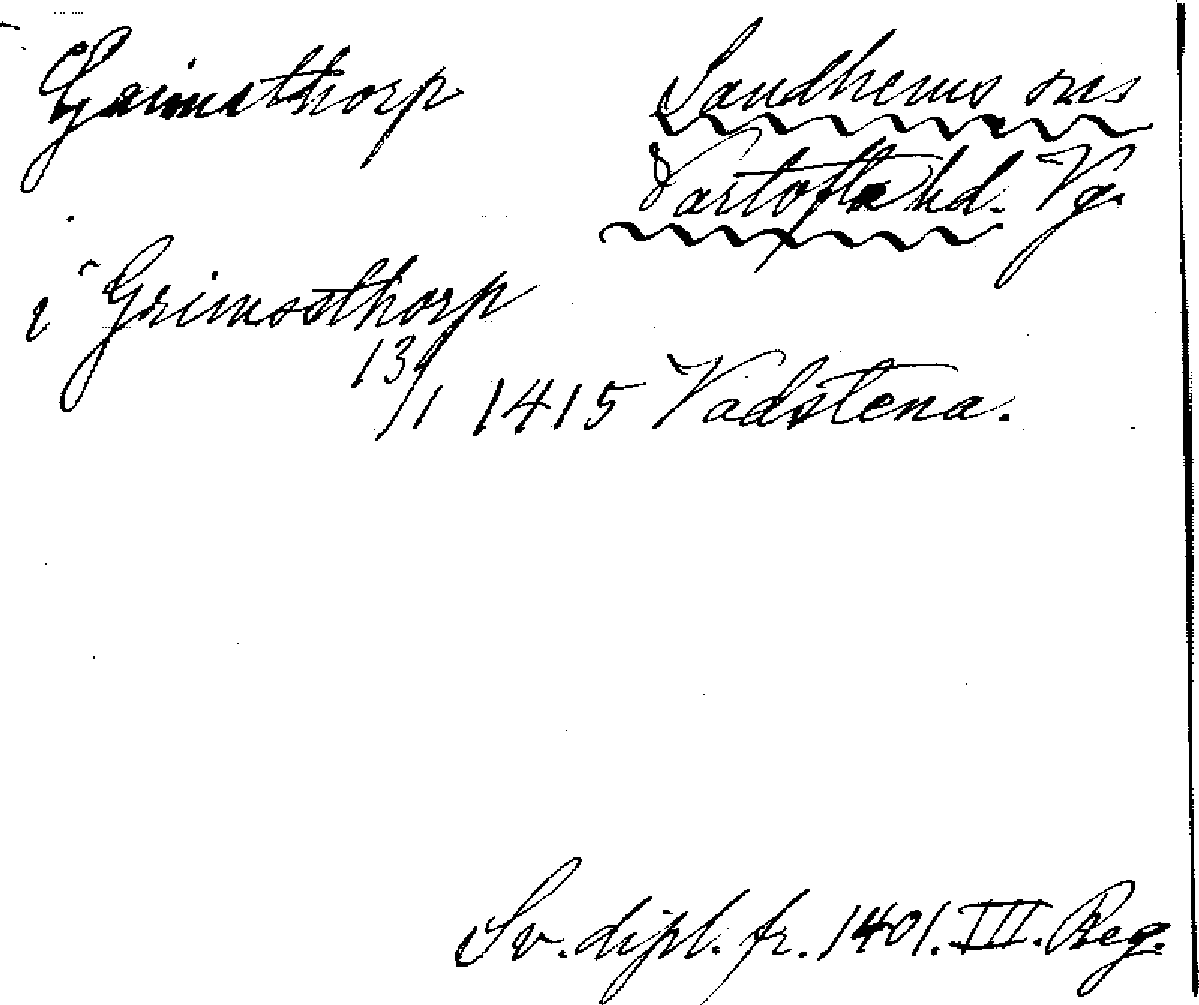 Grimsthorp
Sandhems sns
Vartofta hd. Vg.
i Grimssthorp
13/1 1415 Vadstena.
Sv. dipl. fr. 1401. III. Reg.